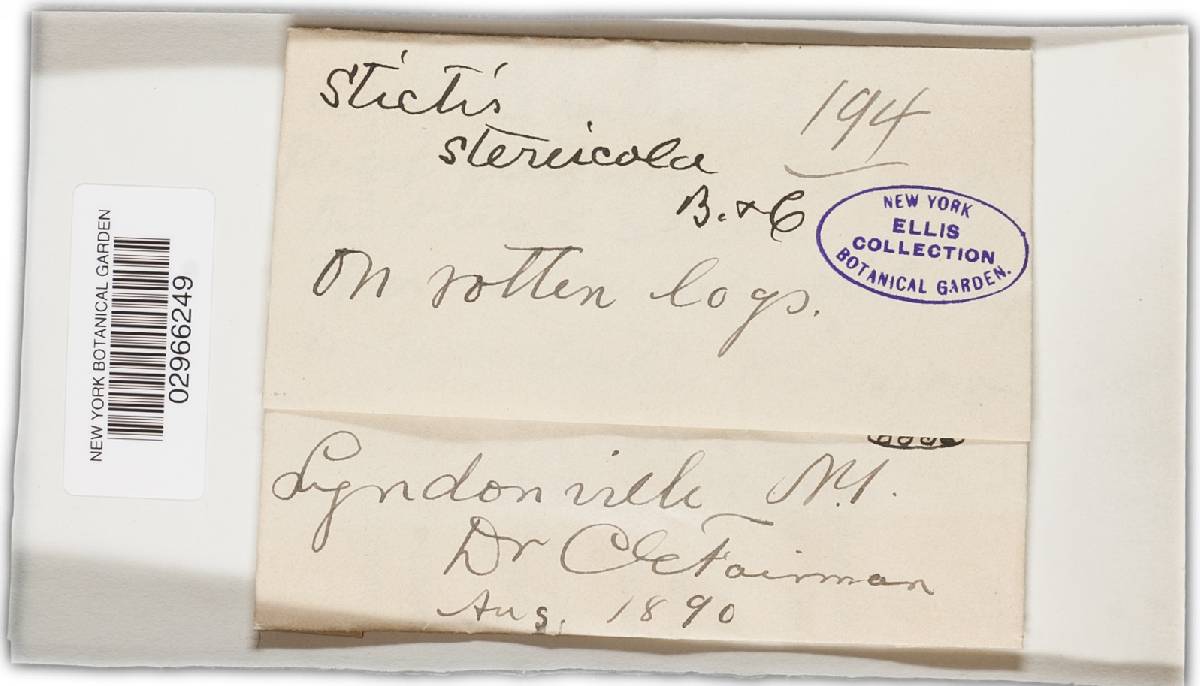 Stictis
stereicola
B. & C
194
NEW YORK
ELLIS
COLLECTION
BOTANICAL GARDEN.
On rotten logs.
Lyndonville N.Y.
Dr C E Fairman
Aug. 1890
NEW YORK BOTANICAL GARDEN
02966249